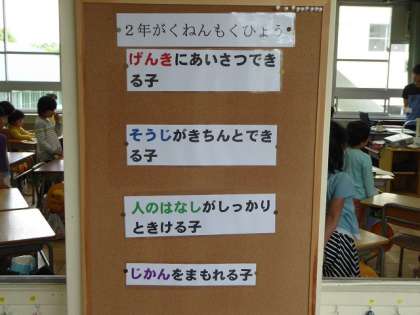 2年がくねんもくひょう
げんきにあいさつでき
る子
そうじがきちんとでき
る子
人のはなしがしっかり
ときける子
じかんをまもれる子